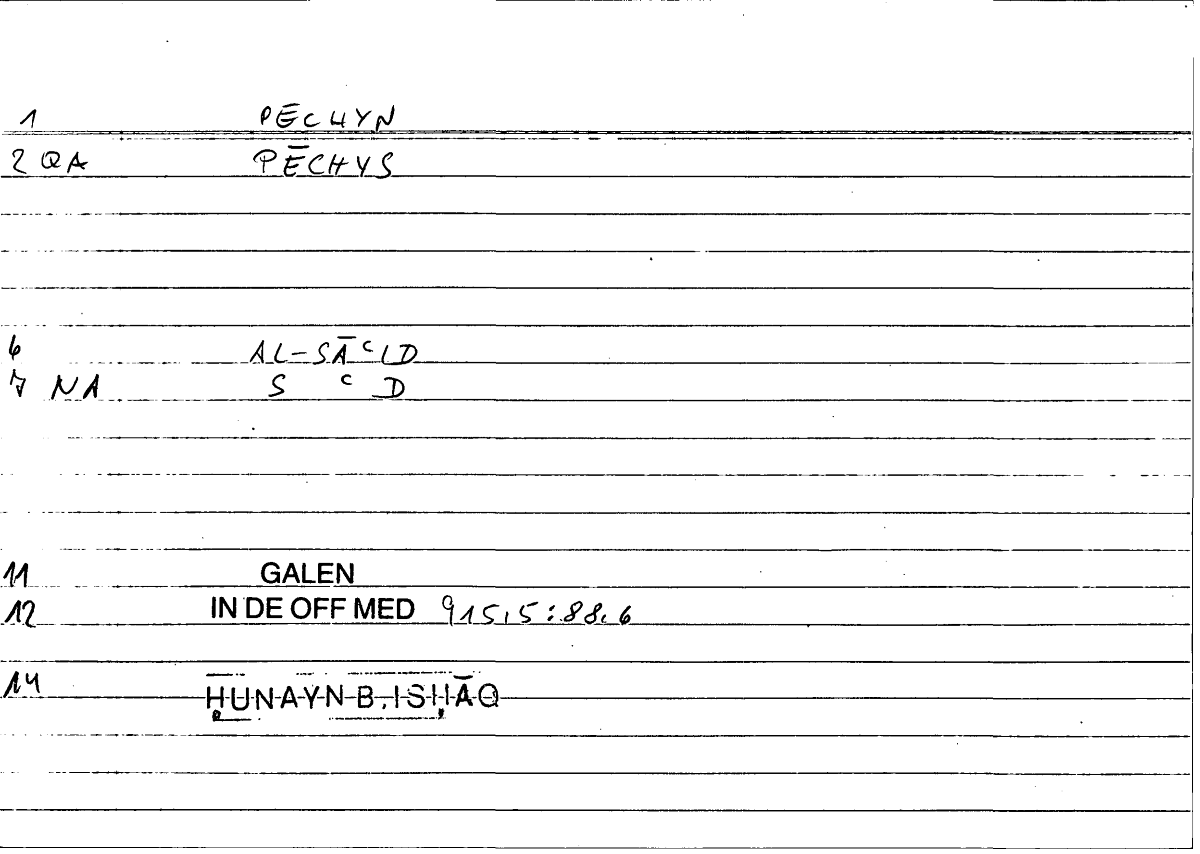 1 PĒCHYN
2 QA PĒCHYS
6 AL-SĀᶜID
7 NA S ᶜ D
11 GALEN
12 IN DE OFF MED 915,5:88,6
14 ḤUNAYN B. ISḤĀQ